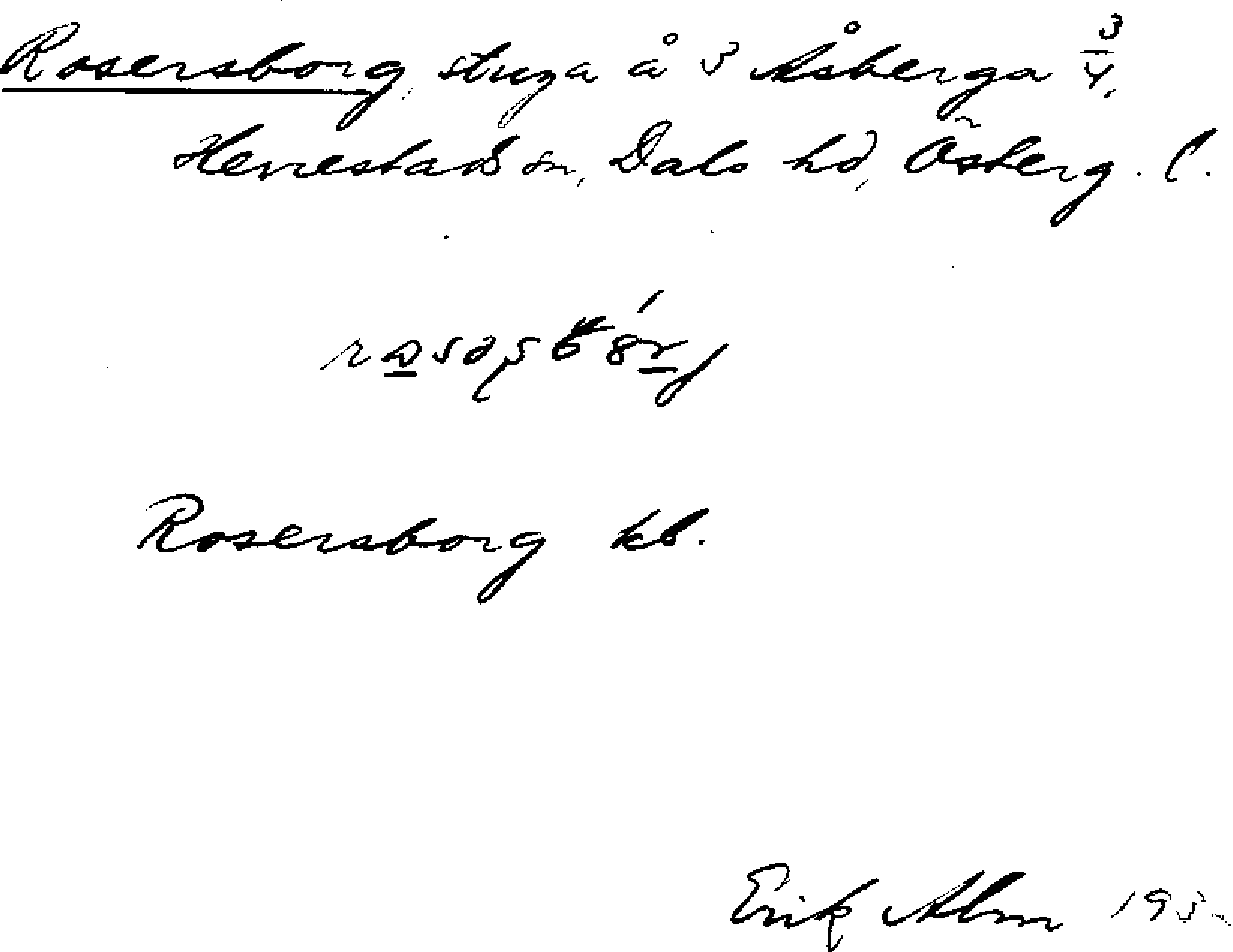 Rosersborg, stuga å 3 Åsberga 3/4,
Herrestads sn, Dals hd, Österg. l.
Rosersborg kb.
Erik Alm